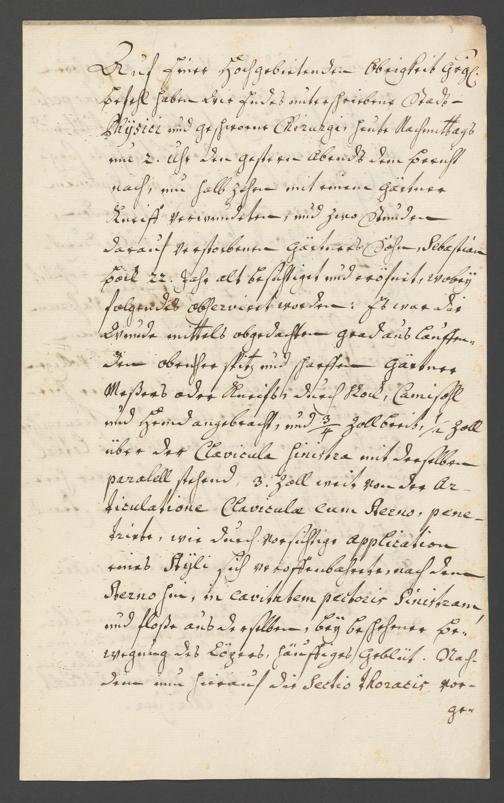 Auf Einer Hochgebietenden Obrigkeit Grgl.
Befehl haben wir Endes unterschriebene Stadt-
Physici und geschworne Chirurgi, heute Nachmittags
um 2. Uhr den gestern Abends dem Bericht
nach, um halb zehen mit einem gärtner
Kneiff verwundeten, und zwo Stunden
darauf verstorbenen gärtners Sohn, Sebastian
22. Jahr alt besichtiget und eröfnet, wobey
folgendes observieret worden: Es war die
Wunde mittels obgedachten grad aus lauffen-
den obenher spitz und scharffen gärtner
Meßers oder Kneiffs, durch Rock, Camisohl
und Hemd angebracht, und 3/4 Zoll breit, 1/2 Zoll
über der Clavicula sinistra mit derselben
paralell stehend, 3. Zoll weit von der Ar-
ticulatione Claviculæ cum Sterno, pene-
trirte, wie durch vorsichtige application
eines Styli sich veroffenbahrete, nach dem
Sterno hin, in cavitatem pectoris sinistram,
und floße aus derselben, bey beschehener Be-
wegung des Cörpers, häuffiges Geblüt. Nach-
dem nun hierauf die Sectio thoracis vor-
ge-